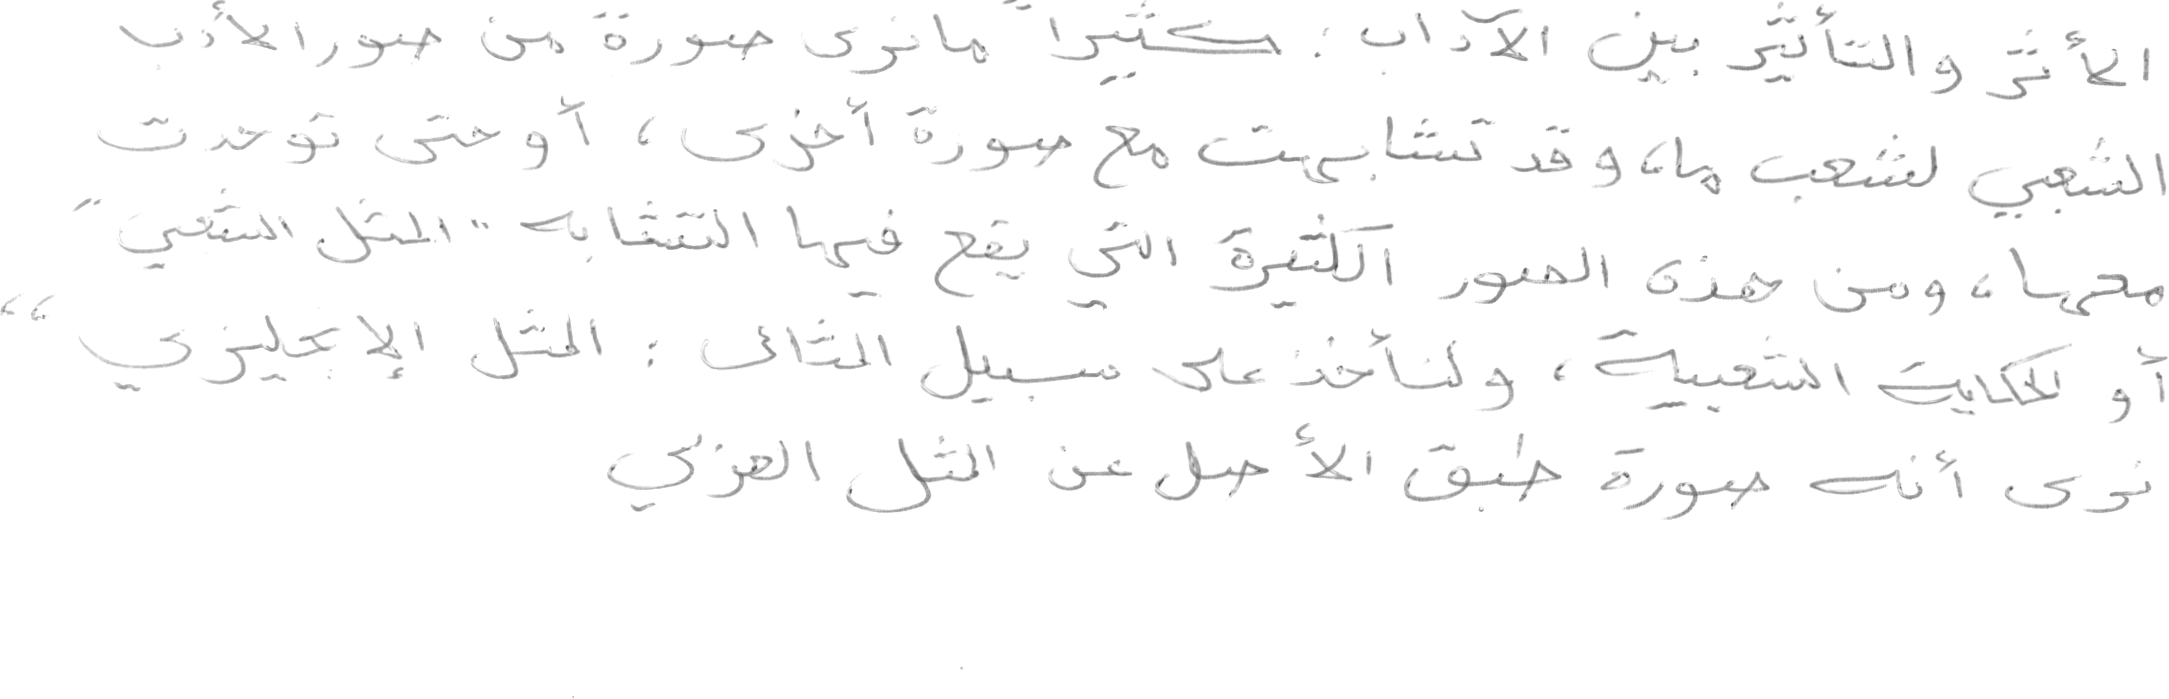 الأثر والتأثير بين الآداب : كثيراً ما نرى صورة من صور الأدب
الشعبي لشعب ما، وقد تشابهت مع صورة أخرى ، أو حتى توحدت
معها ، ومن هذه الصور الكثيرة التي يقع فيها التشابه " المثل الشعبي "
أو الحكاية الشعبية ، ولنأخذ على سبيل المثال : المثل الإنجليزي ،،
نرى أنه صورة طبق الأصل عن المثل العربي